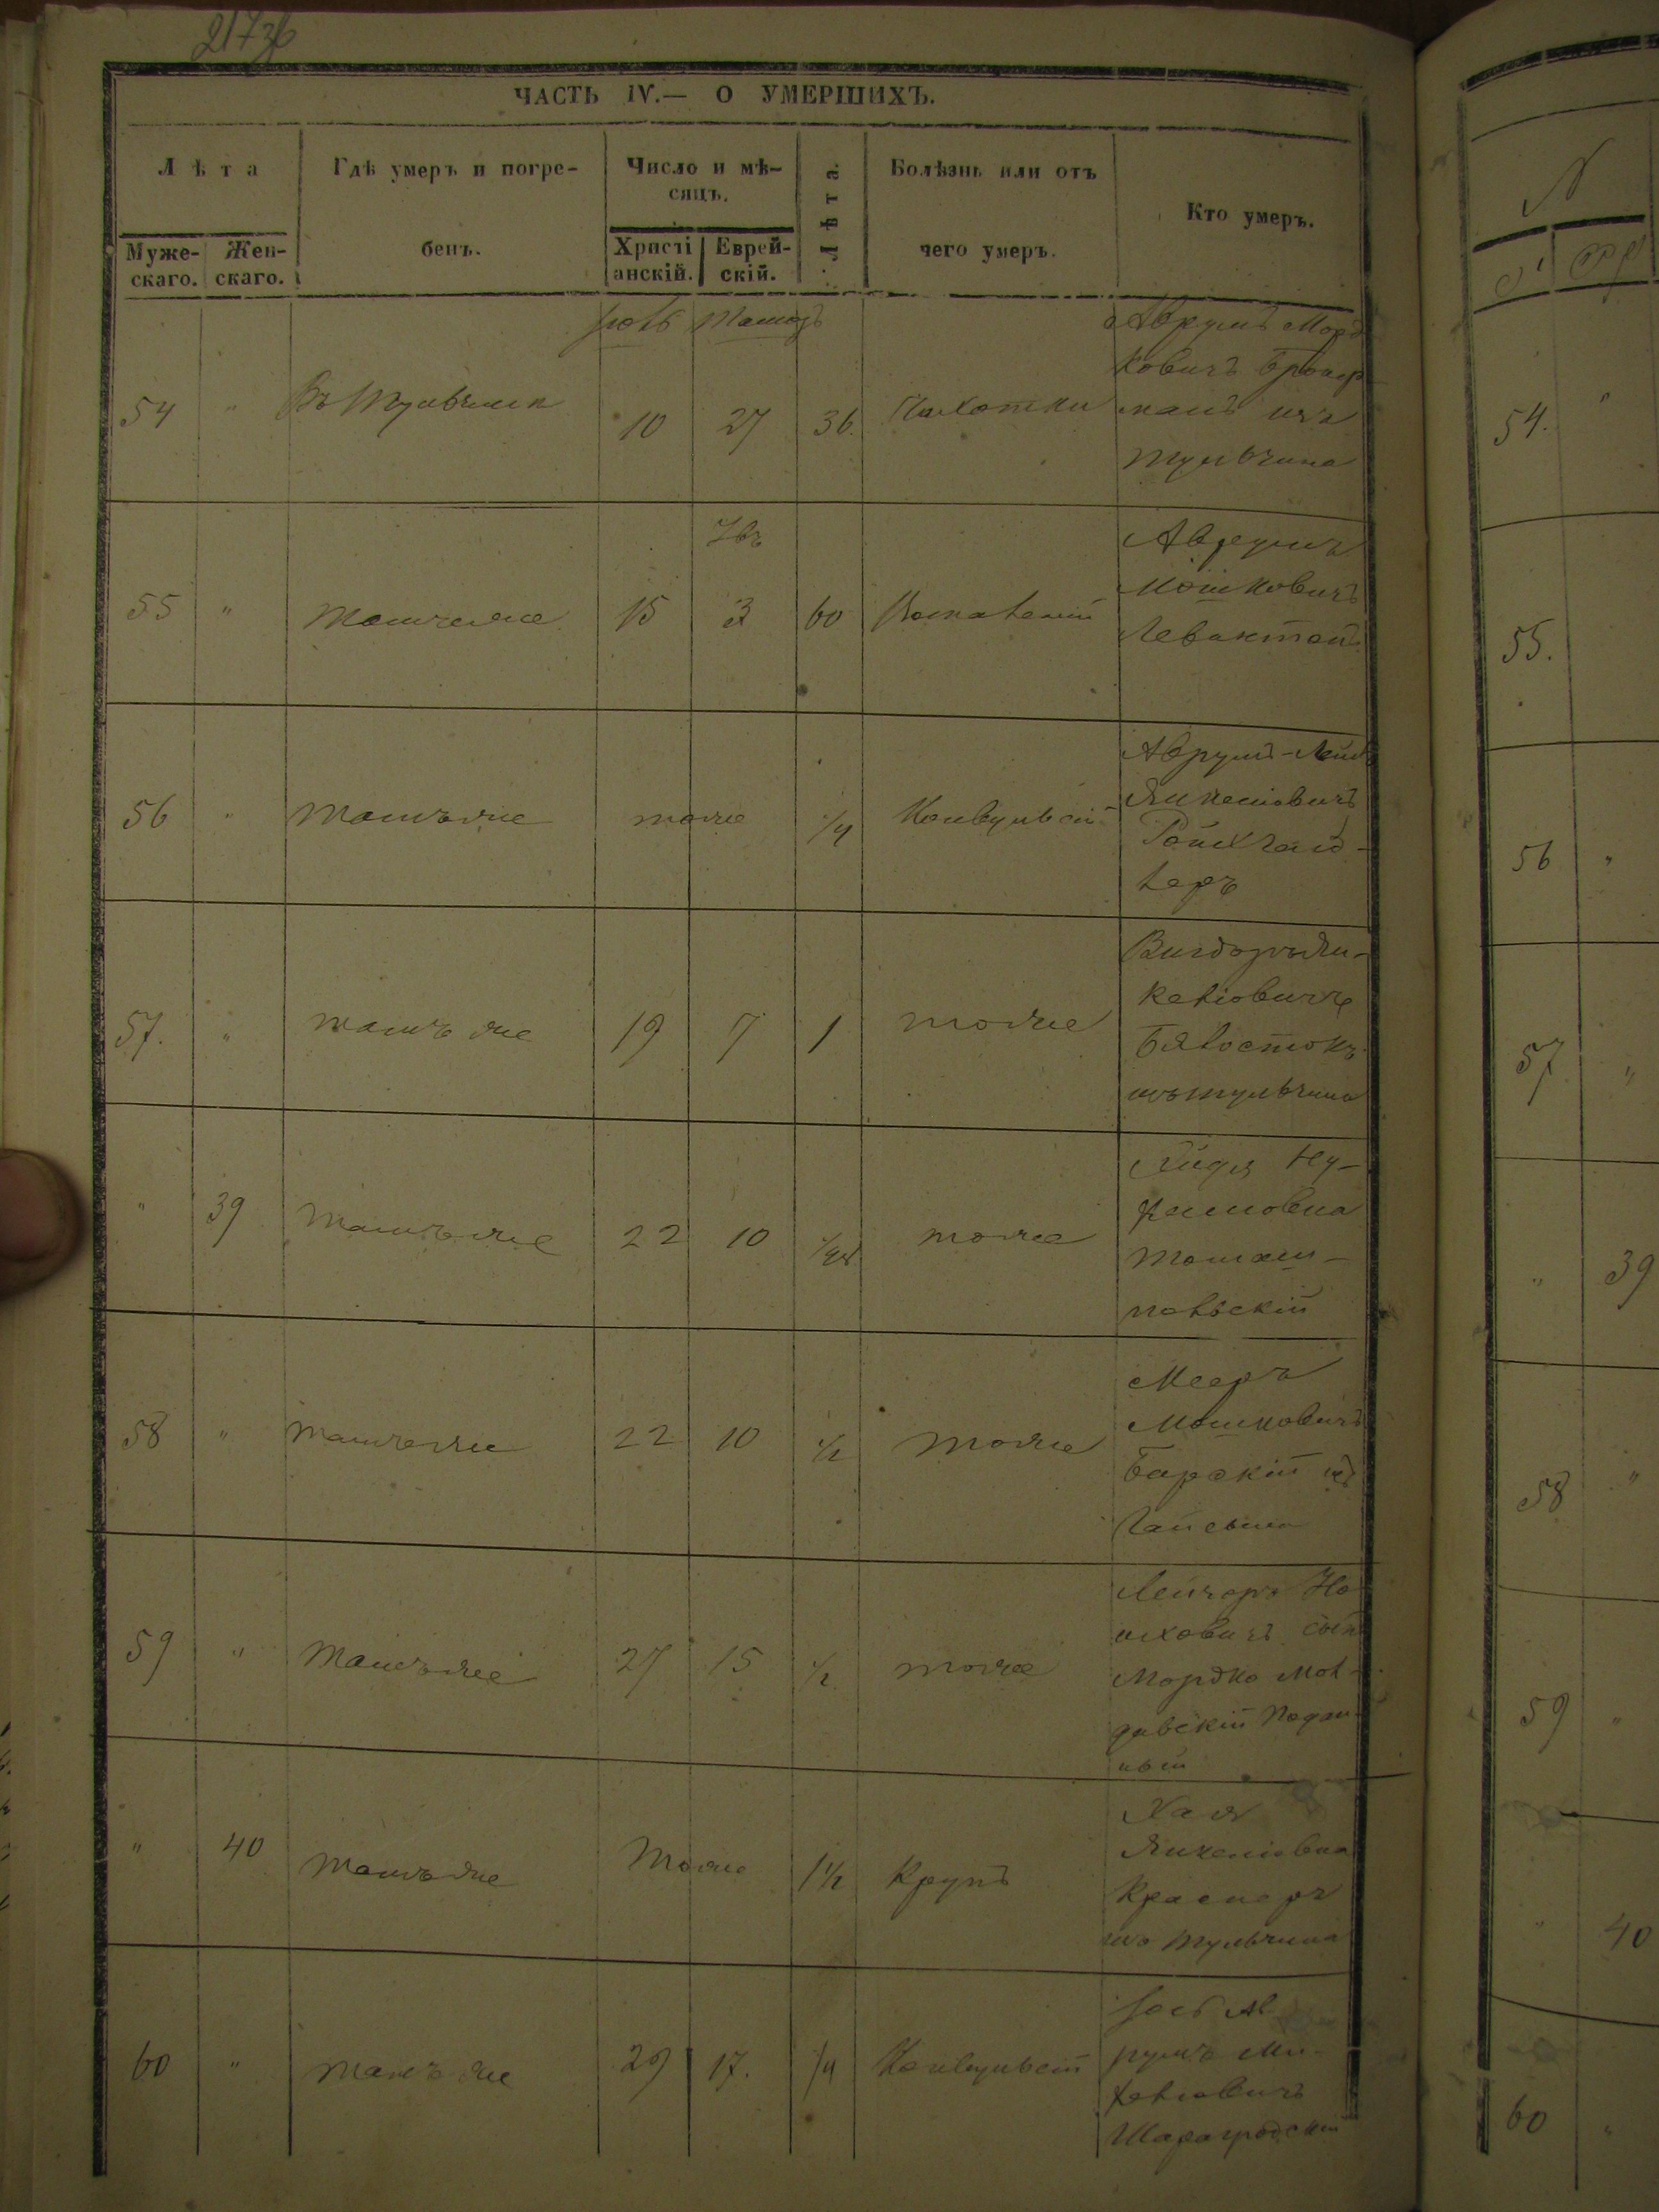 ЧАСТЬ IV.— О УМЕРШИХЪ.
Лѣта
Муже-
скаго.
Жен-
скаго.
Гдѣ умеръ и погре-
бенъ.
Число и мѣ-
сяцъ.
Христі
анскій.
Еврей-
скій.
Лѣта.
Болѣзнь или отъ
чего умеръ.
Кто умеръ.
54 " Въ Тульчинѣ 10 27 36. Чахотки
Аврумъ Морд
ковичъ
манъ изъ
Тульчина
Авъ
55 " Тамъ же 15 3 60
Аврумъ
Мошковичъ
Левантанъ
56 " Тамъ же тоже 1/4 Конвульсій
Аврумъ-Лейб
Янкеліовичъ
теръ
57. " тамъ же 19 7 1 тоже
Вигдоръ Ян-
келіовичъ
Бялостокъ
изъ Тульчина
" 39 Тамъ же 22 10 тоже
Томаш-
польскій
58 " Тамъ же 22 10 1/2 Тоже
Мееръ
Мошковичъ
Барскій изъ
Гайсина
59 " Тамъ же 27 15 1/2 тоже
Лейзоръ Но
иховичъ сынъ
Мордко Мол-
давскій Подан-
ный
" 40 Тамъ же Тоже 1 1/2 Крупъ
Хая
Янкеліовна
Краснеръ
изъ Тульчина
60 " Тамъ же 29 17. 1/4 Конвульсій
Іось Ав
румъ Ми-
хеліовичъ
Шараградскій
54. "
55.
56 "
57 "
" 39
58 "
59 "
" 40
60 "